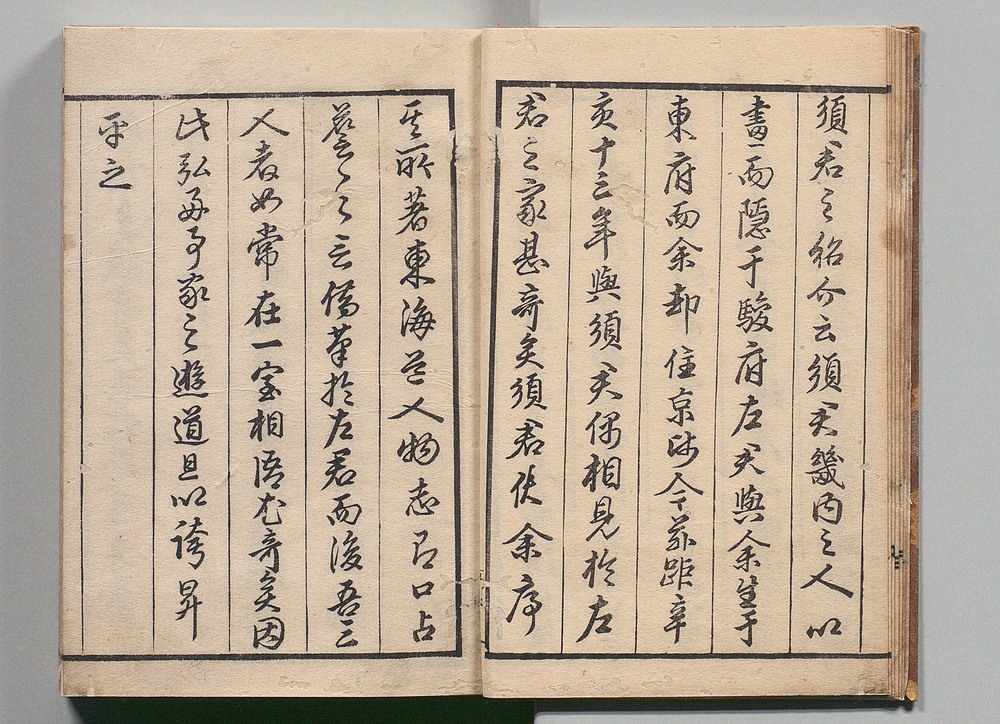 須君之紹介云須君畿内之人以
畫而隱于駿府左君與余生于
東府而余却住京師今茲距辛
亥十三年與須君偶相見於左
君之家甚奇矣須君使余序
其所著東海道人物志即口占
之云倩筆於左君而後吾三
人者如常在一室相語尤奇矣因
此弘好事家之遊道且以誇昇
平之